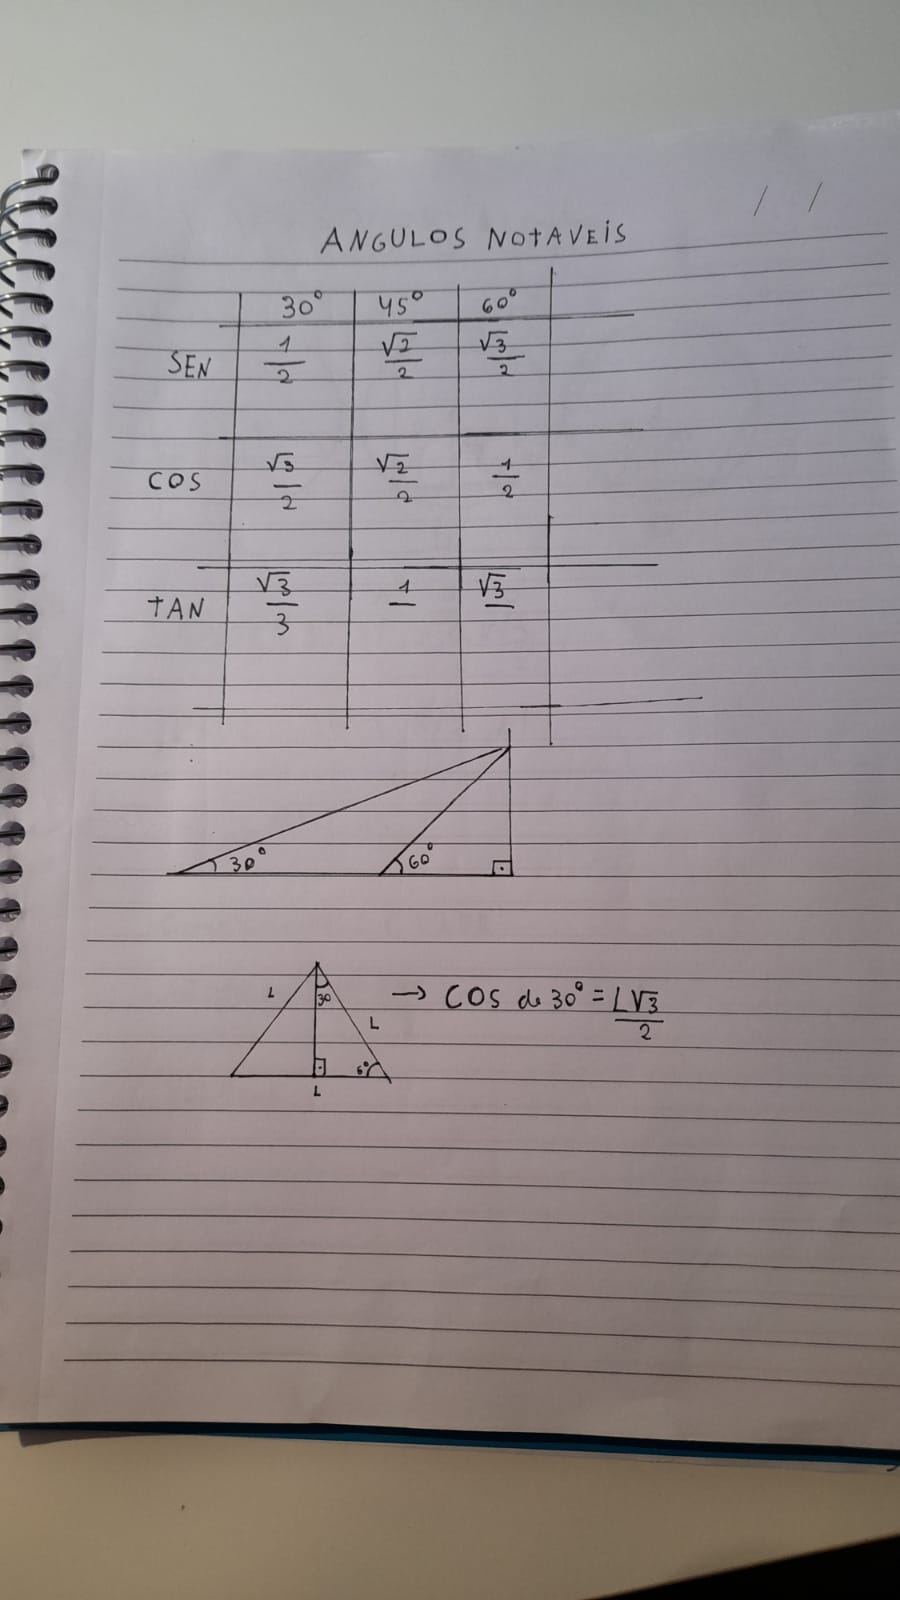 / /
ANGULOS NOTAVEIS
30° 45° 60°
SEN 1/2 √2/2 √3/2
COS √3/2 √2/2 1/2
TAN √3/3 1 √3
30° 60°
L 30 L → COS de 30° = L√3/2
60
L